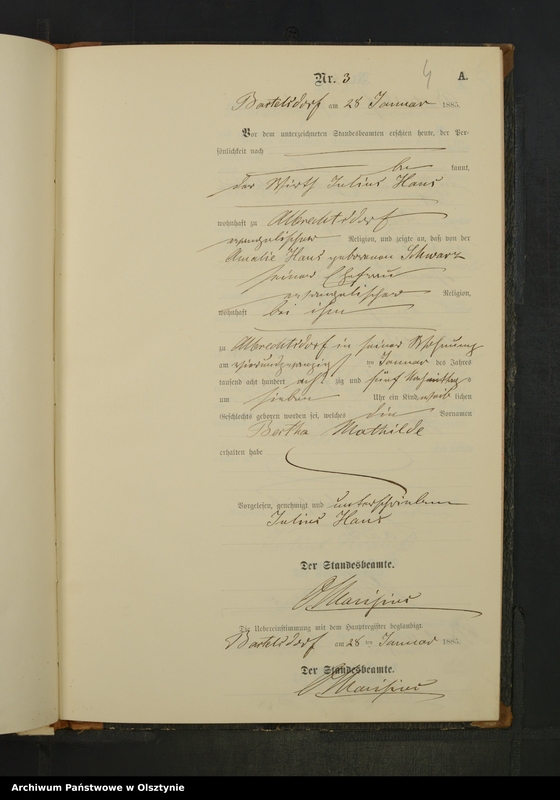 4
Nr. 3 A.
Bartelsdorf am 28 Januar 1885.
Vor dem unterzeichneten Standesbeamten erschien heute, der Per-
sönlichkeit nach
be kannt,
der Wirth Julius Hans
wohnhaft zu Albrechtsdorf
evangelischer Religion, und zeigte an, daß von der
Amalie Hans geborenen Schwarz
seiner Ehefrau
evangelischer Religion,
wohnhaft bei ihm
zu Albrechtsdorf in seiner Wohnung
am vierundzwanzigsten Januar des Jahres
tausend acht hundert acht zig und fünf Nachmittags
um sieben Uhr ein Kind weib lichen
Geschlechts geboren worden sei, welches die Vornamen
Bertha Mathilde
erhalten habe
Vorgelesen, genehmigt und unterschrieben
Julius Hans
Der Standesbeamte.
Die Uebereinstimmung mit dem Hauptregister beglaubigt.
Bartelsdorf am 28 ten Januar 1885.
Der Standesbeamte.
Archiwum Państwowe w Olsztynie